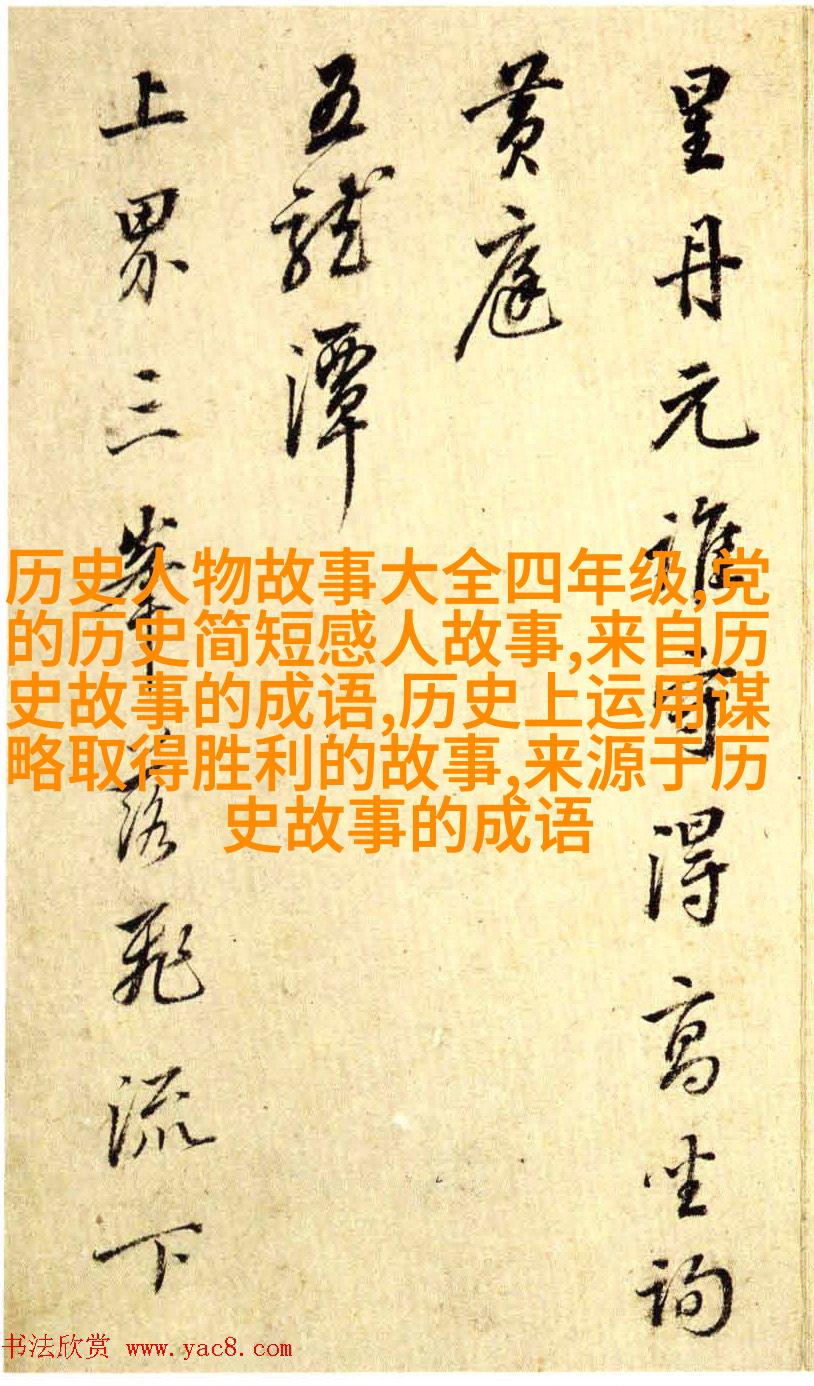 星丹元誰守得高坐詢
黄庭
五龍潭
上界三峯落飛流下
历史人物故事大全四年级,党
的历史简短感人故事,来自历
史故事的成语,历史上运用谋
略取得胜利的故事,来源于历
史故事的成语
书法欣赏 www.yac8.com